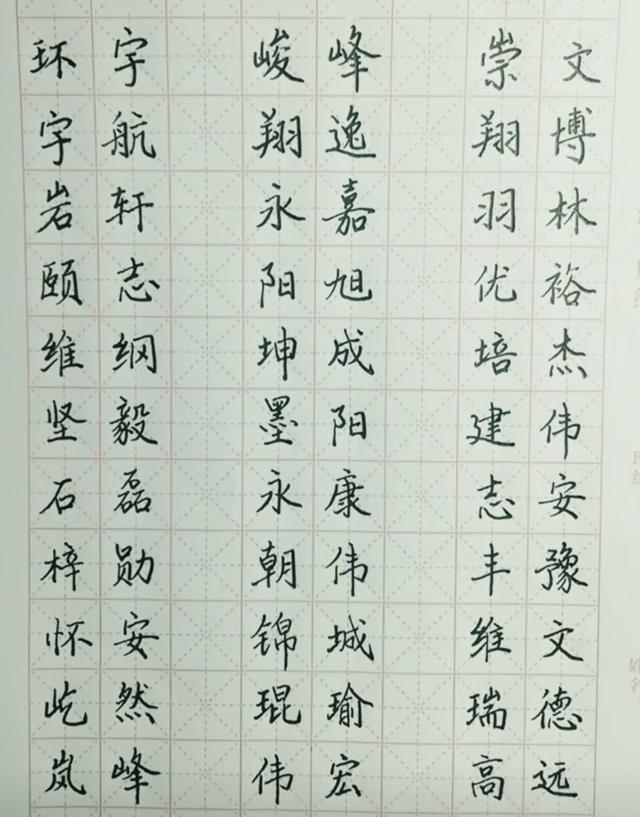 环宇 峻峰 崇文
宇航 翔逸 翔博
岩轩 永嘉 羽林
颐志 阳旭 优裕
维纲 坤成 培杰
坚毅 墨阳 建伟
石磊 永康 志安
梓勋 朝伟 丰豫
怀安 锦城 维文
屹然 琨瑜 瑞德
岚峰 伟宏 高远